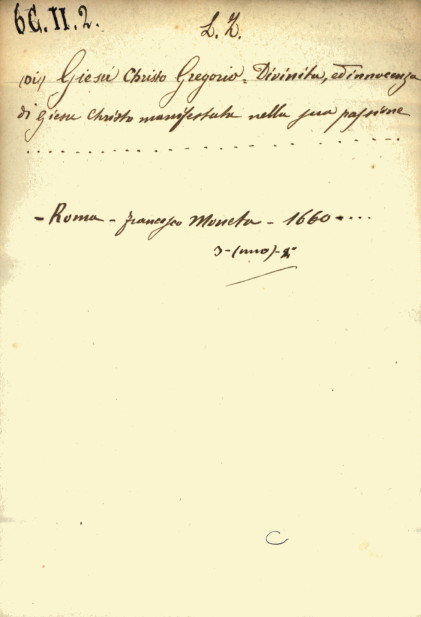 6C.II.2.
L. Z.
(Di) Giesù Christo Gregorio = Divinita, ed innocenza
di Giesu Christo manifestata nella sua passione
- Roma - Francesco Moneta - 1660 - ...
3-(uno)-8°
C